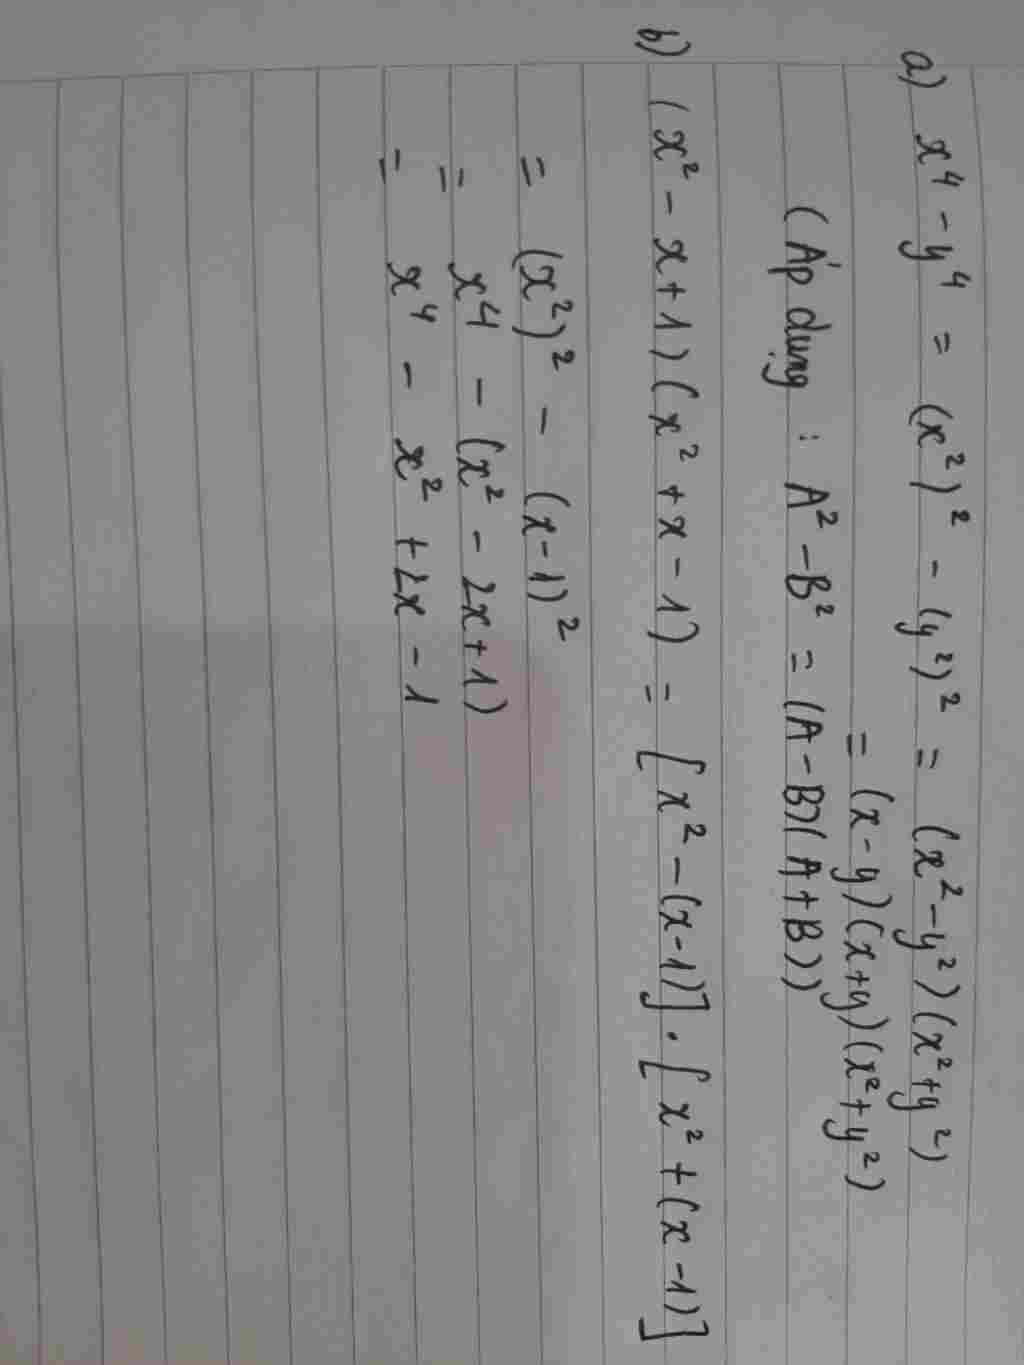 a) x⁴ - y⁴ = (x²)² - (y²)² = (x² - y²)(x² + y²)
= (x - y)(x + y)(x² + y²)
(Áp dụng : A² - B² = (A - B)(A + B))
b) (x² - x + 1)(x² + x - 1) = [x² - (x - 1)] . [x² + (x - 1)]
= (x²)² - (x - 1)²
= x⁴ - (x² - 2x + 1)
= x⁴ - x² + 2x - 1